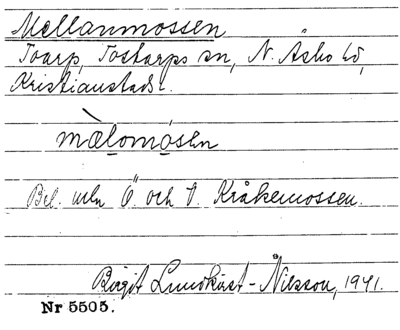 Mellanmossen
Toarp, Tostarps sn, N. Åsbo hd,
Kristianstads l.
mæ̀lomosen
Bel. mln Ö. och V. Kråkemossen.
Birgit Lundkvist-Nilsson, 1941.
Nr 5505.